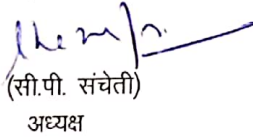 (सी.पी. संचेती)
अध्यक्ष